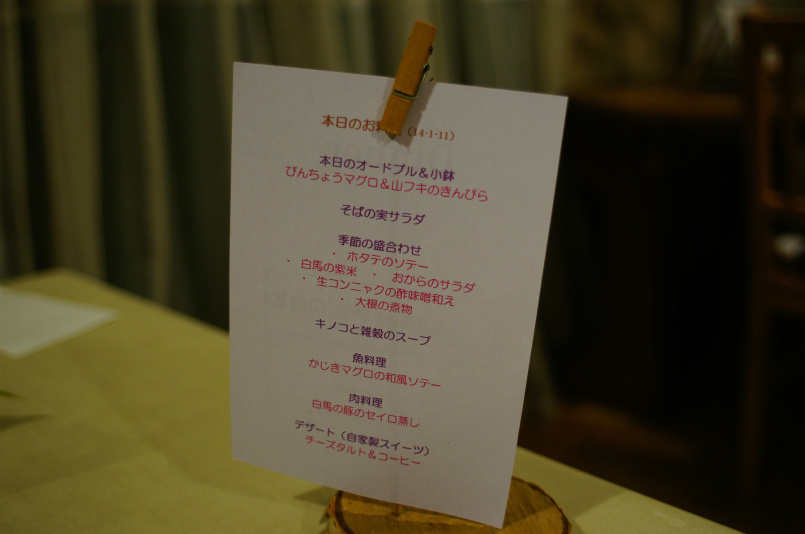 本日のお料 (14-1-11)
本日のオードブル＆小鉢
びんちょうマグロ＆山フキのきんぴら
そばの実サラダ
季節の盛合わせ
・ ホタテのソテー
・ 白馬の紫米 ・ おからのサラダ
・ 生コンニャクの酢味噌和え
・ 大根の煮物
キノコと雑穀のスープ
魚料理
かじきマグロの和風ソテー
肉料理
白馬の豚のセイロ蒸し
デザート（自家製スイーツ）
チーズタルト＆コーヒー